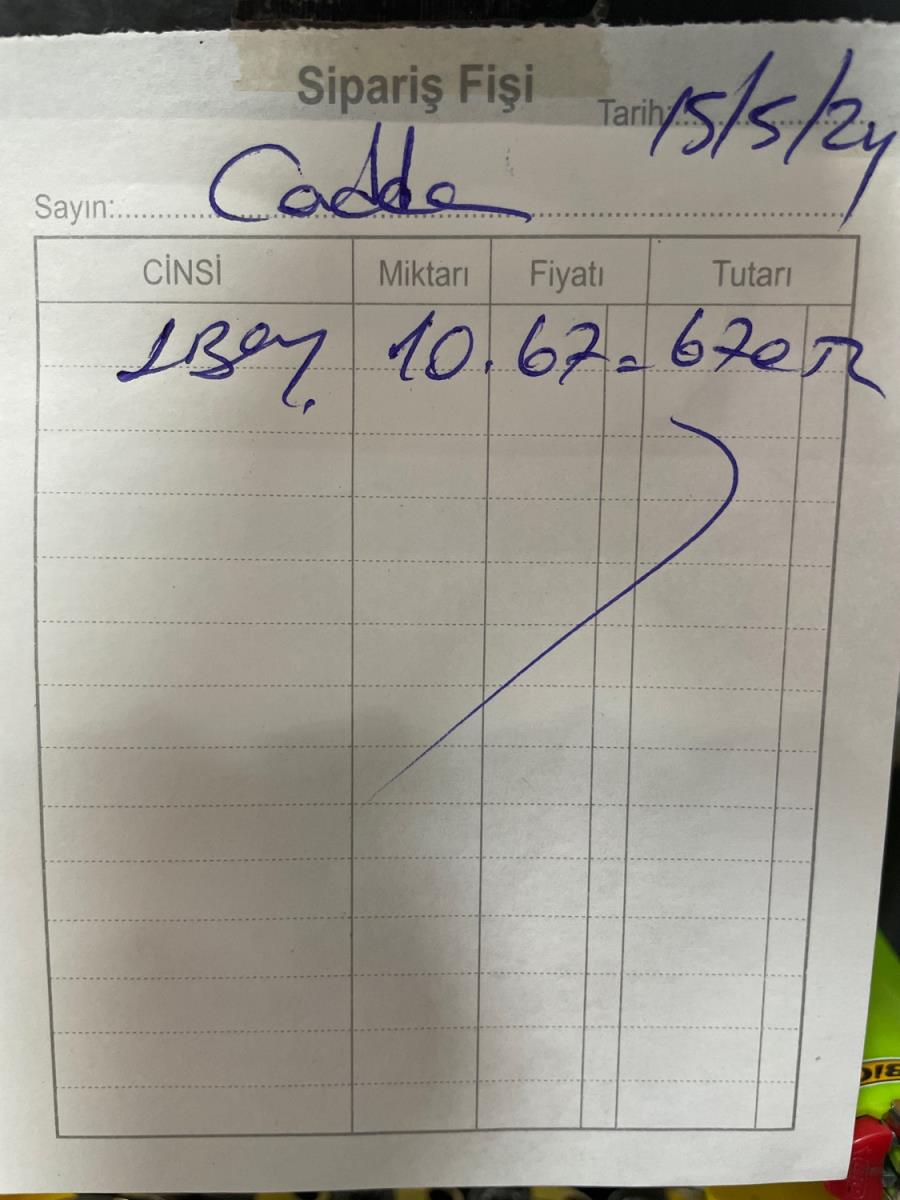 Sipariş Fişi
Tarih: 15/5/24
Sayın: Cadde
CİNSİ Miktarı Fiyatı Tutarı
10.67=670 TL